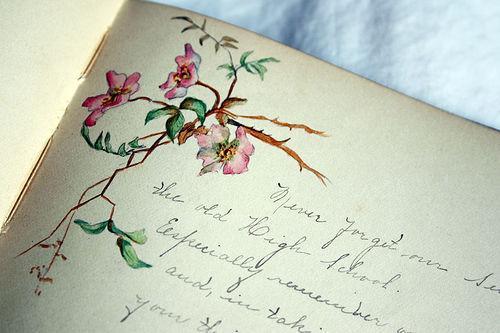 Never forget our
the old High School.
Especially remember
and, in
your